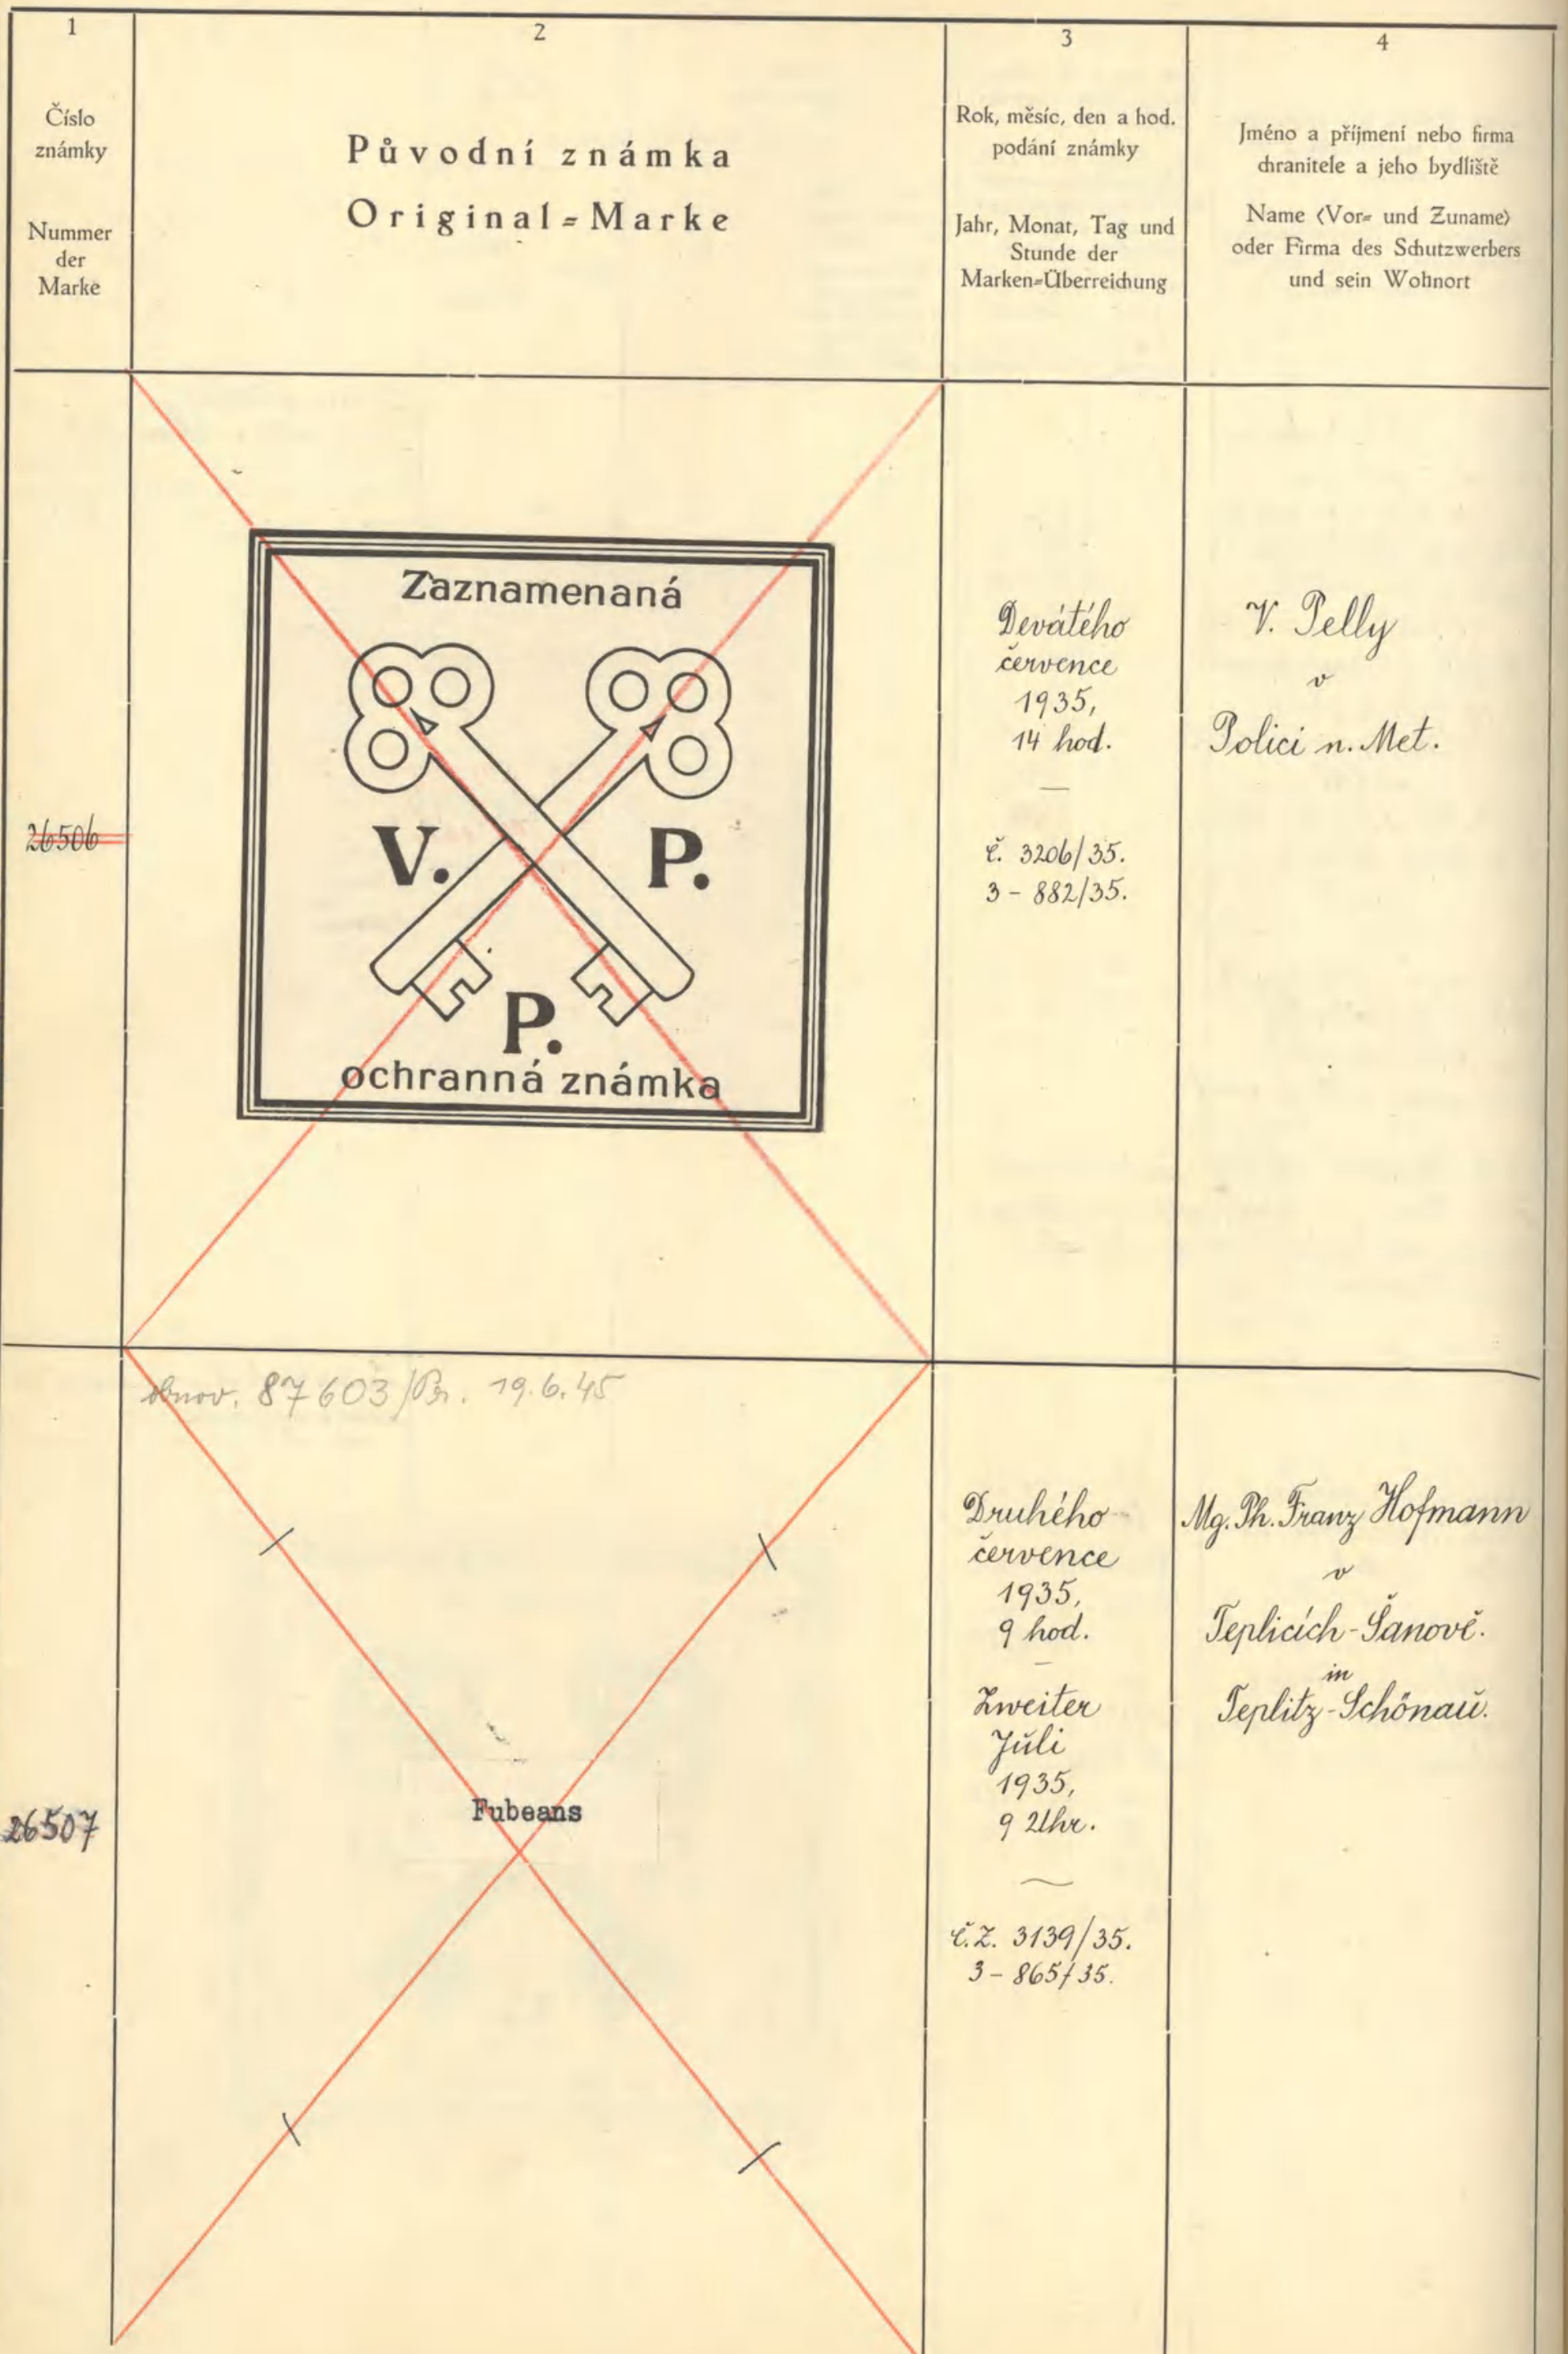 1
Číslo
známky
Nummer
der
Marke
2
Původní známka
Original=Marke
3
Rok, měsíc, den a hod.
podání známky
Jahr, Monat, Tag und
Stunde der
Marken=Überreichung
4
Jméno a příjmení nebo firma
chranitele a jeho bydliště
Name (Vor= und Zuname)
oder Firma des Schutzwerbers
und sein Wohnort
26506
Zaznamenaná
V. P.
P.
ochranná známka
Devátého
července
1935,
14 hod.
—
č. 3206/35.
3 - 882/35.
V. Pelly
v
Polici n. Met.
26507
obnov. 87603/Br. 19.6.45
Fubeans
Druhého
července
1935,
9 hod.
—
Zweiter
Juli
1935,
9 Uhr.
č.Z. 3139/35.
3 - 865/35.
Mg. Ph. Franz Hofmann
v
Teplicích-Šanově.
in
Teplitz-Schönau.